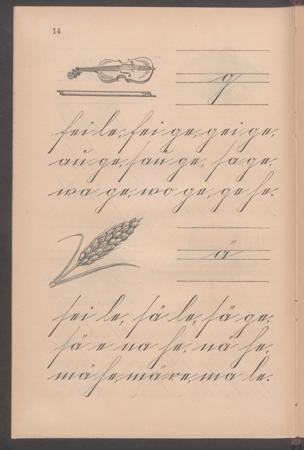 14
g
fei le, fei ge, gei ge,
au ge, sau ge, sa ge,
wa ge, wo ge, ge he.
ä
sei le, sä le, sä ge,
sä e, nä he, nä he,
mä he, mä re, ma le.